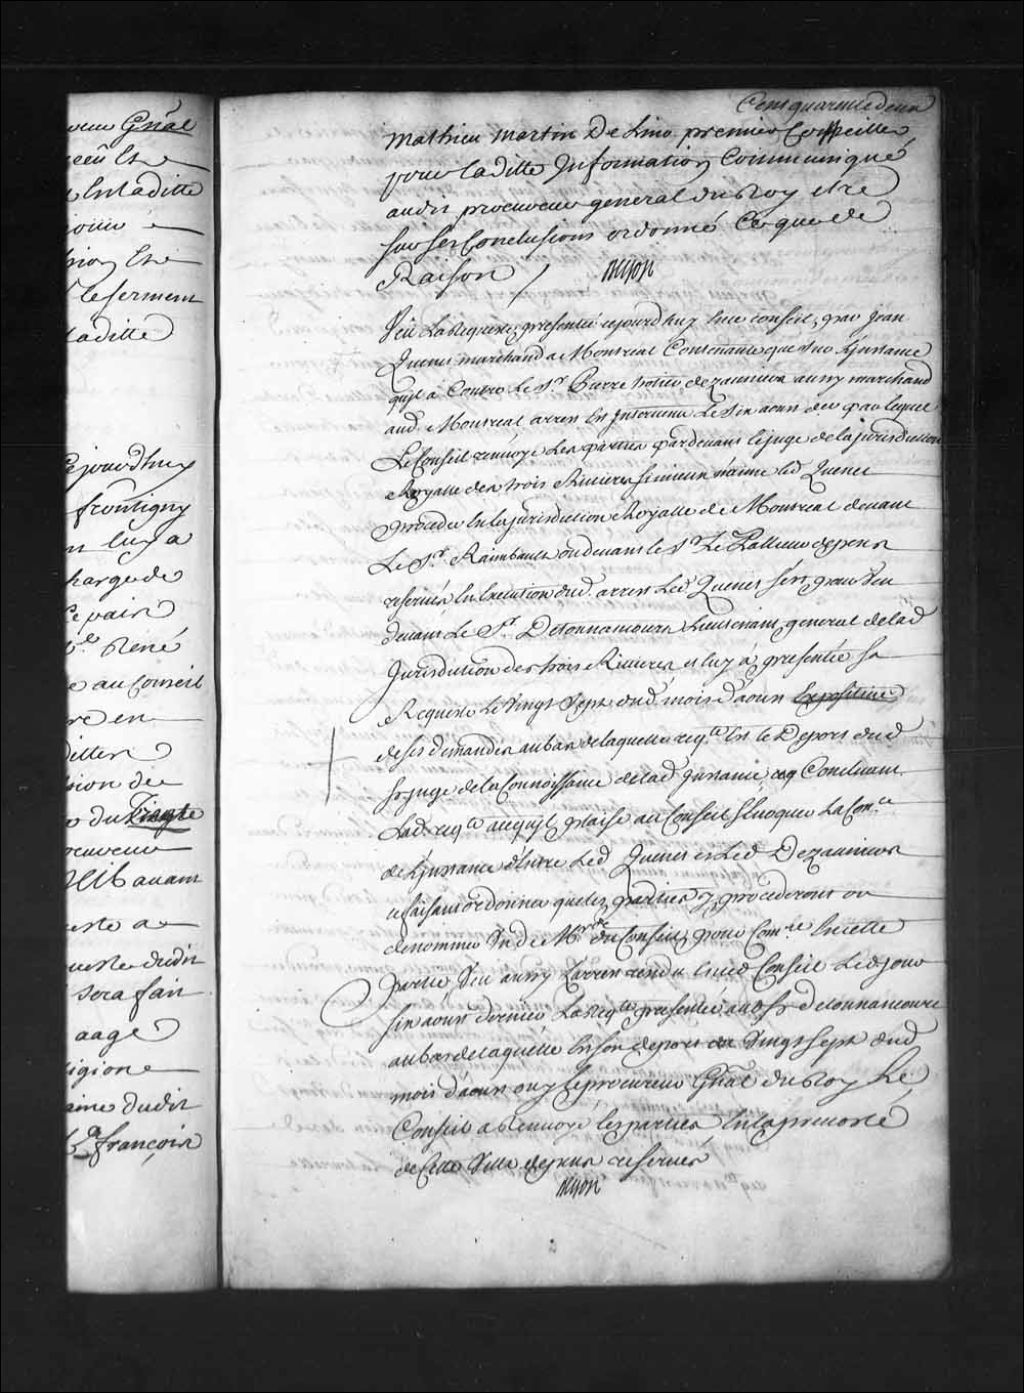 Cent quarente deux
oureur Gñal
reçeu Et
En laditte
jour
sion Et
le serment
laditte
Cejourd'huy
frontigny
en luy a
charge de
René
au Conseil
re en
sion de
du Vingte
procureur
avant
este a
ueste dudit
sera fait
aagé
ligion
aine dudit
françois
Mathieu Martin De Lino premier Conseiller
pour laditte Information Communiqué
audit procureur general du Roy etre
sur ses Conclusions ordonné Ce que de
Raison /
Veu La Requeste presentée cejourd'huy En ce conseil, par Jean
Quenet marchand a Montreal Contenante que sur L'jnstance
qu'jl à Contre Le Sr. Pierre trotier dezauniers aussy marchand
aud. Montreal arrest Est jntervenu Le Six aoust der par lequel
Le Conseil renvoye Les parties pardevant le juge de la jurisdiction
Royalle des trois Rivieres si mieux n'aime led Quenet
proceder En la jurisdiction Royalle de Montreal devant
Le Sr. Raimbault ou devant le Sr Le Pallieur depens
reservés En Execution dud. arrest Led Quenet s'est pourveu
devant Le Sr. Detonnancourt Lieutenant general de lad
Jurisdiction des trois Rivieres et luy à presentée sa
Requeste Le Vingt Sept dud mois d'aoust Expositive
de ses demandes au bas de laquelle reqte Est le Deport dud
Sr juge de la Connoissance de lad jnstance Concluant
Lad. reqte a ce qu'jl plaise au Conseil Evoquer La Con.ce
de L'jnstance d'Entre Led Quenet et Led Dezauniers
ce faisant ordonner que les parties y procederont ou
denommer Un de Mrs du Conseil pour Com.re En cette
partie, Veu aussy L'arrest rendu En ced Conseil Led jour
Six aoust dernier La reqte presentée aud Sr detonnancourt
au bas de laquelle Est son deport du Vingt Sept dud
mois d'aoust ouy Le procureur Gñal du Roy Le
Conseil a Renvoyé les parties En la prevosté
de Cette Ville depens reservés